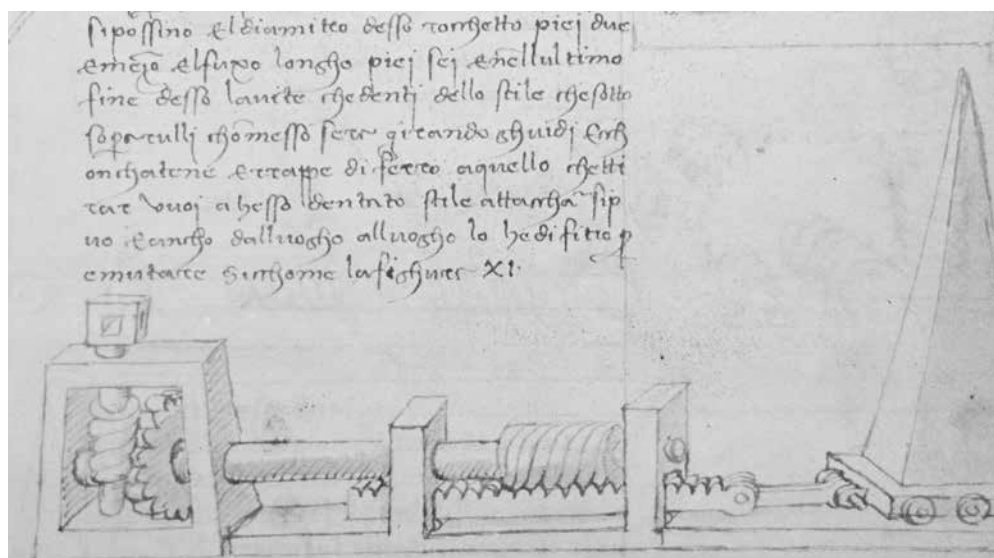 si possino el diamitro desso rocchetto piej due
e mezo el fuxo longho piej sei e nell ultimo
fine desso la vite che denti dello stile che sotto
sopra rulli chomesso sera girando ghuidi Ecch
on chatene e trappe di ferro a quello chetti
rar vuoj ahesso dentato stile attaccha sip
uo e ancho dalluogho alluogho lo hedifitio p
emutare sicchome la fighura XI